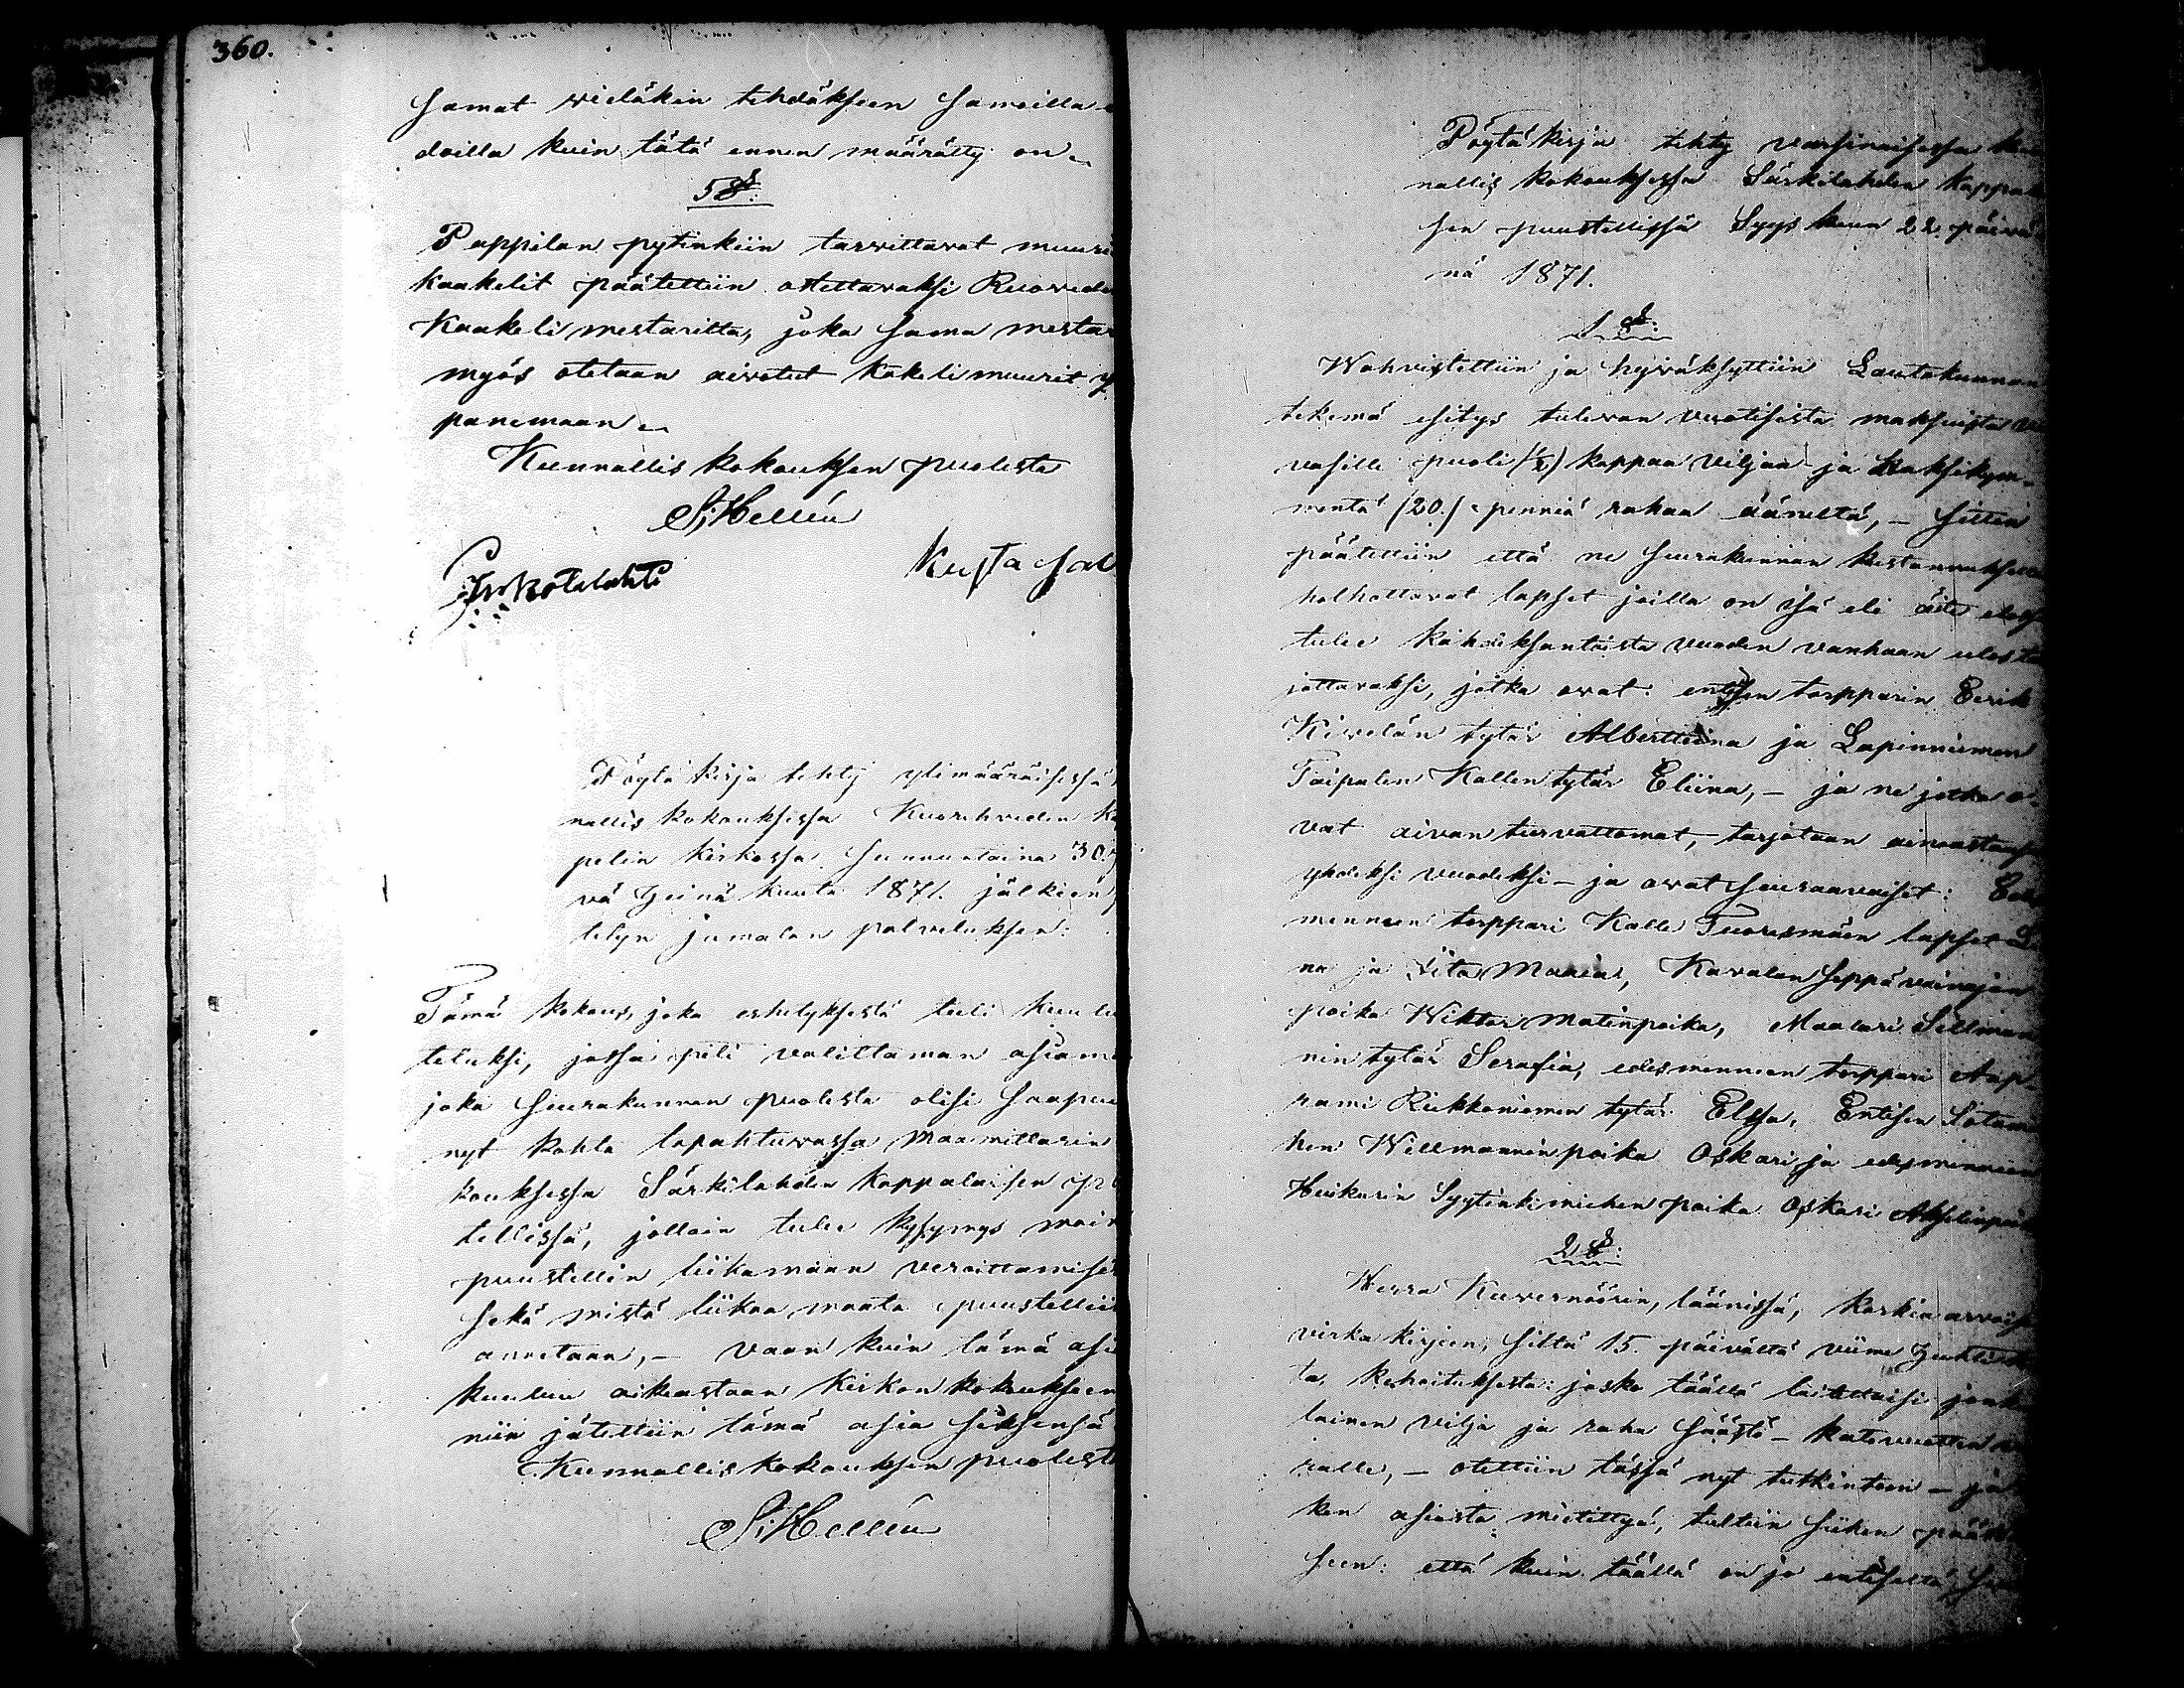 360.
samat wieläkin tehdäkseen samoilla
doilla kuin tätä ennen määrätty on
5 §:
Pappilan pytinkiin tarvittavat muuri
kaakelit päätettiin otettavaksi Ruoveden
Kaakelimestarilta, joka sama mestari
myös otetaan aivotut kakelimuurit
panemaan
Kunnallis kokouksen puolesta
S: Hellén
Kusta Sal
Pöytä kirja tehty ylimääräisessä
nallis kokouksessa Kuorehveden
pelin kirkossa Sunnuntaina 30.
vä Heinä kuuta 1871. jälkeen
tetyn jumalan palveluksen:
Tämä kokous, joka esitetyksestä tuli kuulu
teluksi, jossa piti valittaman asiami
joka Seurakunnan puolesta olisi saapuu
nyt kohta tapahtuvassa Maamittarin
kouksessa Särkilahden kappalaisen
tellissä, jolloin tulee kysymys main
puustellin liikamaan veroittamise
sekä mistä liikaa maata puustelliin
annetaan, – vaan kuin tämä asia
kuuluu oikeastaan Kirkon kokoukseen
niin jätettiin tämä asia siksensä
Kunnallis kokouksen puolesta
S: Hellén
Pöytä kirja tehty varsinaisessa
nallis kokouksessa Särkilahden Kappalai
sen puustellissä Syys kuun 22. päivä
nä 1871.
1 §:
Wahvistettiin ja hyväksyttiin Lautakunnan
tekemä esitys tulevan vuotisista maksuista
vasille puoli (½) kappaa viljaa ja kaksikym-
mentä (20.) penniä rahaa ääneltä, – Sitten
päätettiin että ne Seurakunnan kustannuksella
holhottavat lapset joilla on isä eli äiti elossa
tulee kahdeksantoista vuoden vanhaan ulos tar
jottavaksi, jotka ovat: entisen torpparin Eerik
Kivelän tytär Albertiina ja Lapinniemen
Taipalen Kallen tytär Eliina, – ja ne jotka o-
vat aivan turvattomat, tarjotaan ainoastansa
yhdeksi vuodeksi – ja ovat seuraavaiset:
mennein torppari Kalle Tuoresmäen lapset
na ja Iita Maaria, Kavalan Seppä vainajan
poika Wiktor Matinpoika, Maalari Sellman
nin tytär Serafia, edesmennein torppari Aap-
rami Riukkoniemen tytär Elssa, Entisen Sotamie
hen Willmannin poika Oskari, ja edesmennein
Heikurin Syytinkimiehen poika Oskari Akselinpoika
2 §:
Herra Kuvernöörin, läänissä, korkia arvoisen
virka kirjeen, siltä 15. päivältä viime Huhtikuu
ta, kehoituksesta: josko täällä laitettaisi jonk
lainen vilja ja raha säästö – katovuotten
ralle, – otettiin tässä nyt tutkintoon – ja
ken asiasta mietittyä, tultiin siihen päätök
seen: että kuin täällä on jo entiseltä